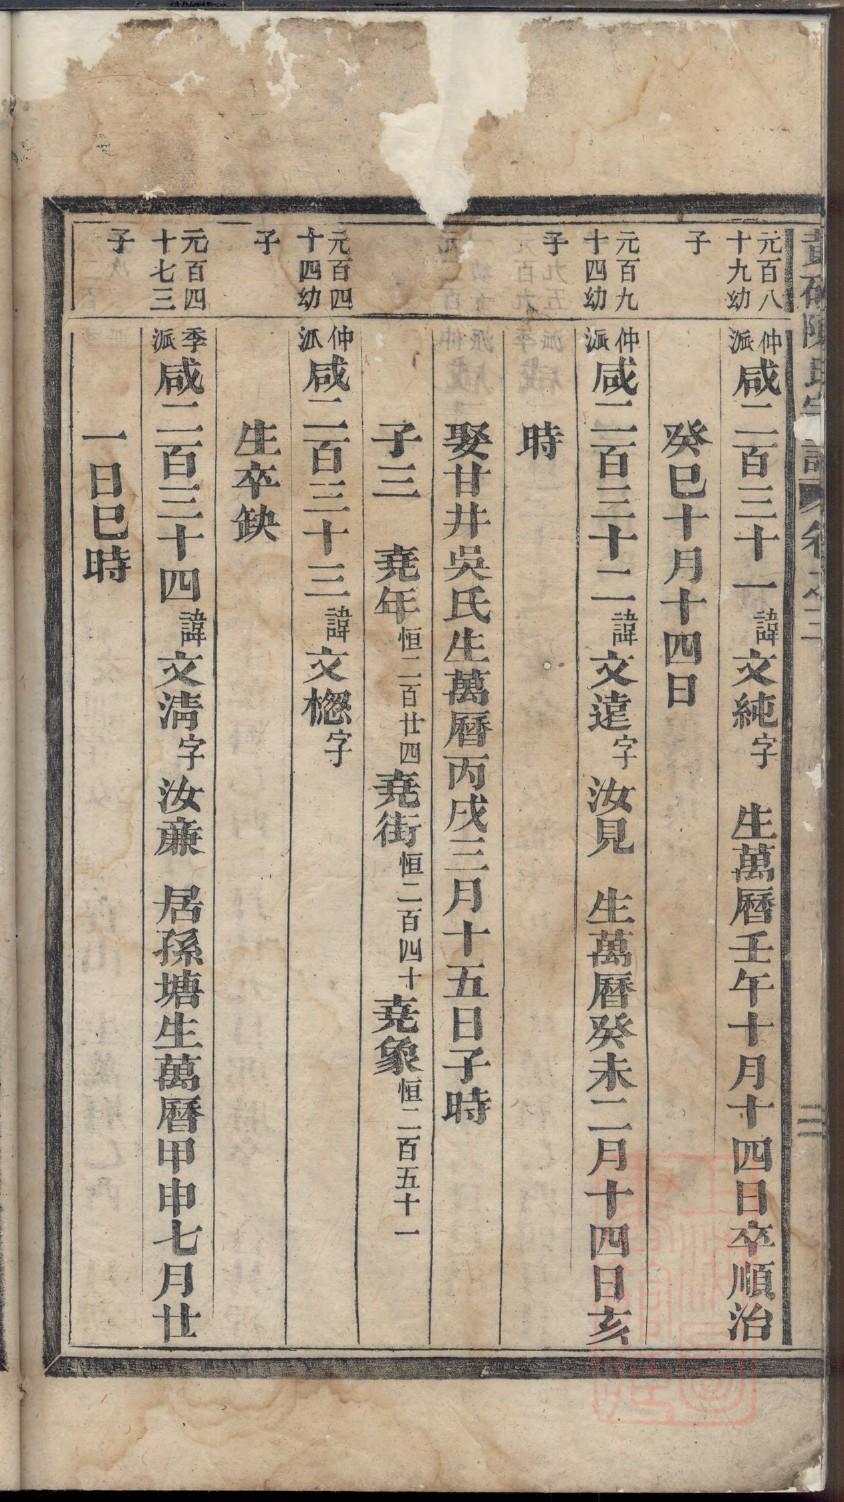 陳氏宗譜 卷之三
二
元百八十九幼子
仲派咸二百三十一諱文純字 生萬曆壬午十月十四日卒順治
癸巳十月十四日
元百九十四幼子
仲派咸二百三十二諱文遠字汝見 生萬曆癸未二月十四日亥
時
娶甘井吳氏生萬曆丙戌三月十五日子時
子三 堯年恒二百廿四堯街恒二百四十堯象恒二百五十一
元百四十四幼子
仲派咸二百三十三諱文字
生卒缺
元百四十七三子
季派咸二百三十四諱文淸字汝亷 居孫塘生萬曆甲申七月廿
一日巳時